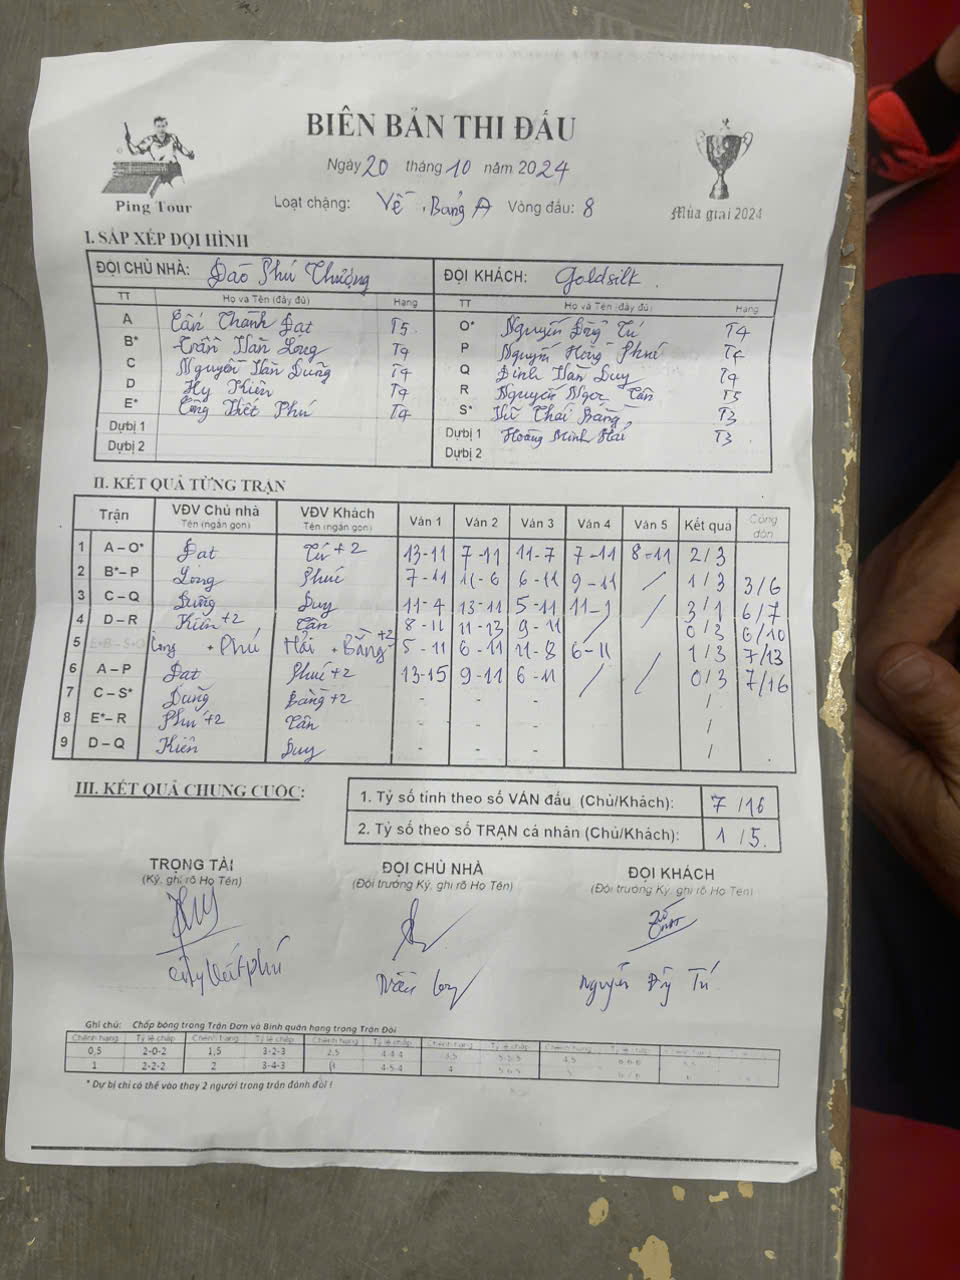 BIÊN BẢN THI ĐẤU
Ngày 20 tháng 10 năm 2024
Ping Tour
Loạt chặng: Về, Bảng A Vòng đấu: 8
Mùa giải 2024
I. SẮP XẾP ĐỘI HÌNH
ĐỘI CHỦ NHÀ: Đào Phú Thượng ĐỘI KHÁCH: Goldsilk
TT Họ và Tên (đầy đủ) Hạng TT Họ và Tên (đầy đủ) Hạng
A Cấn Thành Đạt T5 O* Nguyễn Tú T4
B* Trần Văn Long T4 P Nguyễn Hồng Phú T4
C Nguyễn Văn Dũng T4 Q Đinh Văn Duy T4
D Hy Kiên T4 R Nguyễn Ngọc Tân T5
E* Phú T4 S* Vũ Thái Bằng T3
Dự bị 1 Dự bị 1 Hoàng Minh Hải T3
Dự bị 2 Dự bị 2
II. KẾT QUẢ TỪNG TRẬN
Trận VĐV Chủ nhà Tên (ngắn gọn) VĐV Khách Tên (ngắn gọn) Ván 1 Ván 2 Ván 3 Ván 4 Ván 5 Kết quả Cộng dồn
1 A – O* Đạt Tú +2 13-11 7-11 11-7 7-11 8-11 2/3
2 B* – P Long Phú 7-11 11-6 6-11 9-11 / 1/3 3/6
3 C – Q Dũng Duy 11-4 13-11 5-11 11-9 / 3/1 6/7
4 D – R Kiên +2 Tân 8-11 11-13 9-11 / 0/3 6/10
5 Long + Phú Hải + Bằng +2 5-11 6-11 11-8 6-11 1/3 7/13
6 A – P Đạt Phú +2 13-15 9-11 6-11 / / 0/3 7/16
7 C – S* Dũng Bằng +2 - - - /
8 E* – R Phú +2 Tân /
9 D – Q Kiên Duy - - - /
III. KẾT QUẢ CHUNG CUỘC:
1. Tỷ số tính theo số VÁN đấu (Chủ/Khách): 7/16
2. Tỷ số theo số TRẬN cá nhân (Chủ/Khách): 1/5.
TRỌNG TÀI ĐỘI CHỦ NHÀ ĐỘI KHÁCH
(Ký, ghi rõ Họ Tên) (Đội trưởng Ký, ghi rõ Họ Tên) (Đội trưởng Ký, ghi rõ Họ Tên)
Trần Long Nguyễn Tú
Ghi chú: Chấp bóng trong Trận Đơn và Bình quân hạng trong Trận Đôi
Chênh hạng Tỷ lệ chấp Chênh hạng Tỷ lệ chấp Chênh hạng Tỷ lệ chấp Chênh hạng Tỷ lệ chấp Chênh hạng Tỷ lệ chấp
0,5 2-0-2 1,5 3-2-3 2,5 4-4-4 3,5 5-5-5 4,5 6-6-6
1 2-2-2 2 3-4-3 3 4-5-4 4
* Dự bị chỉ có thể vào thay 2 người trong trận đánh đôi !